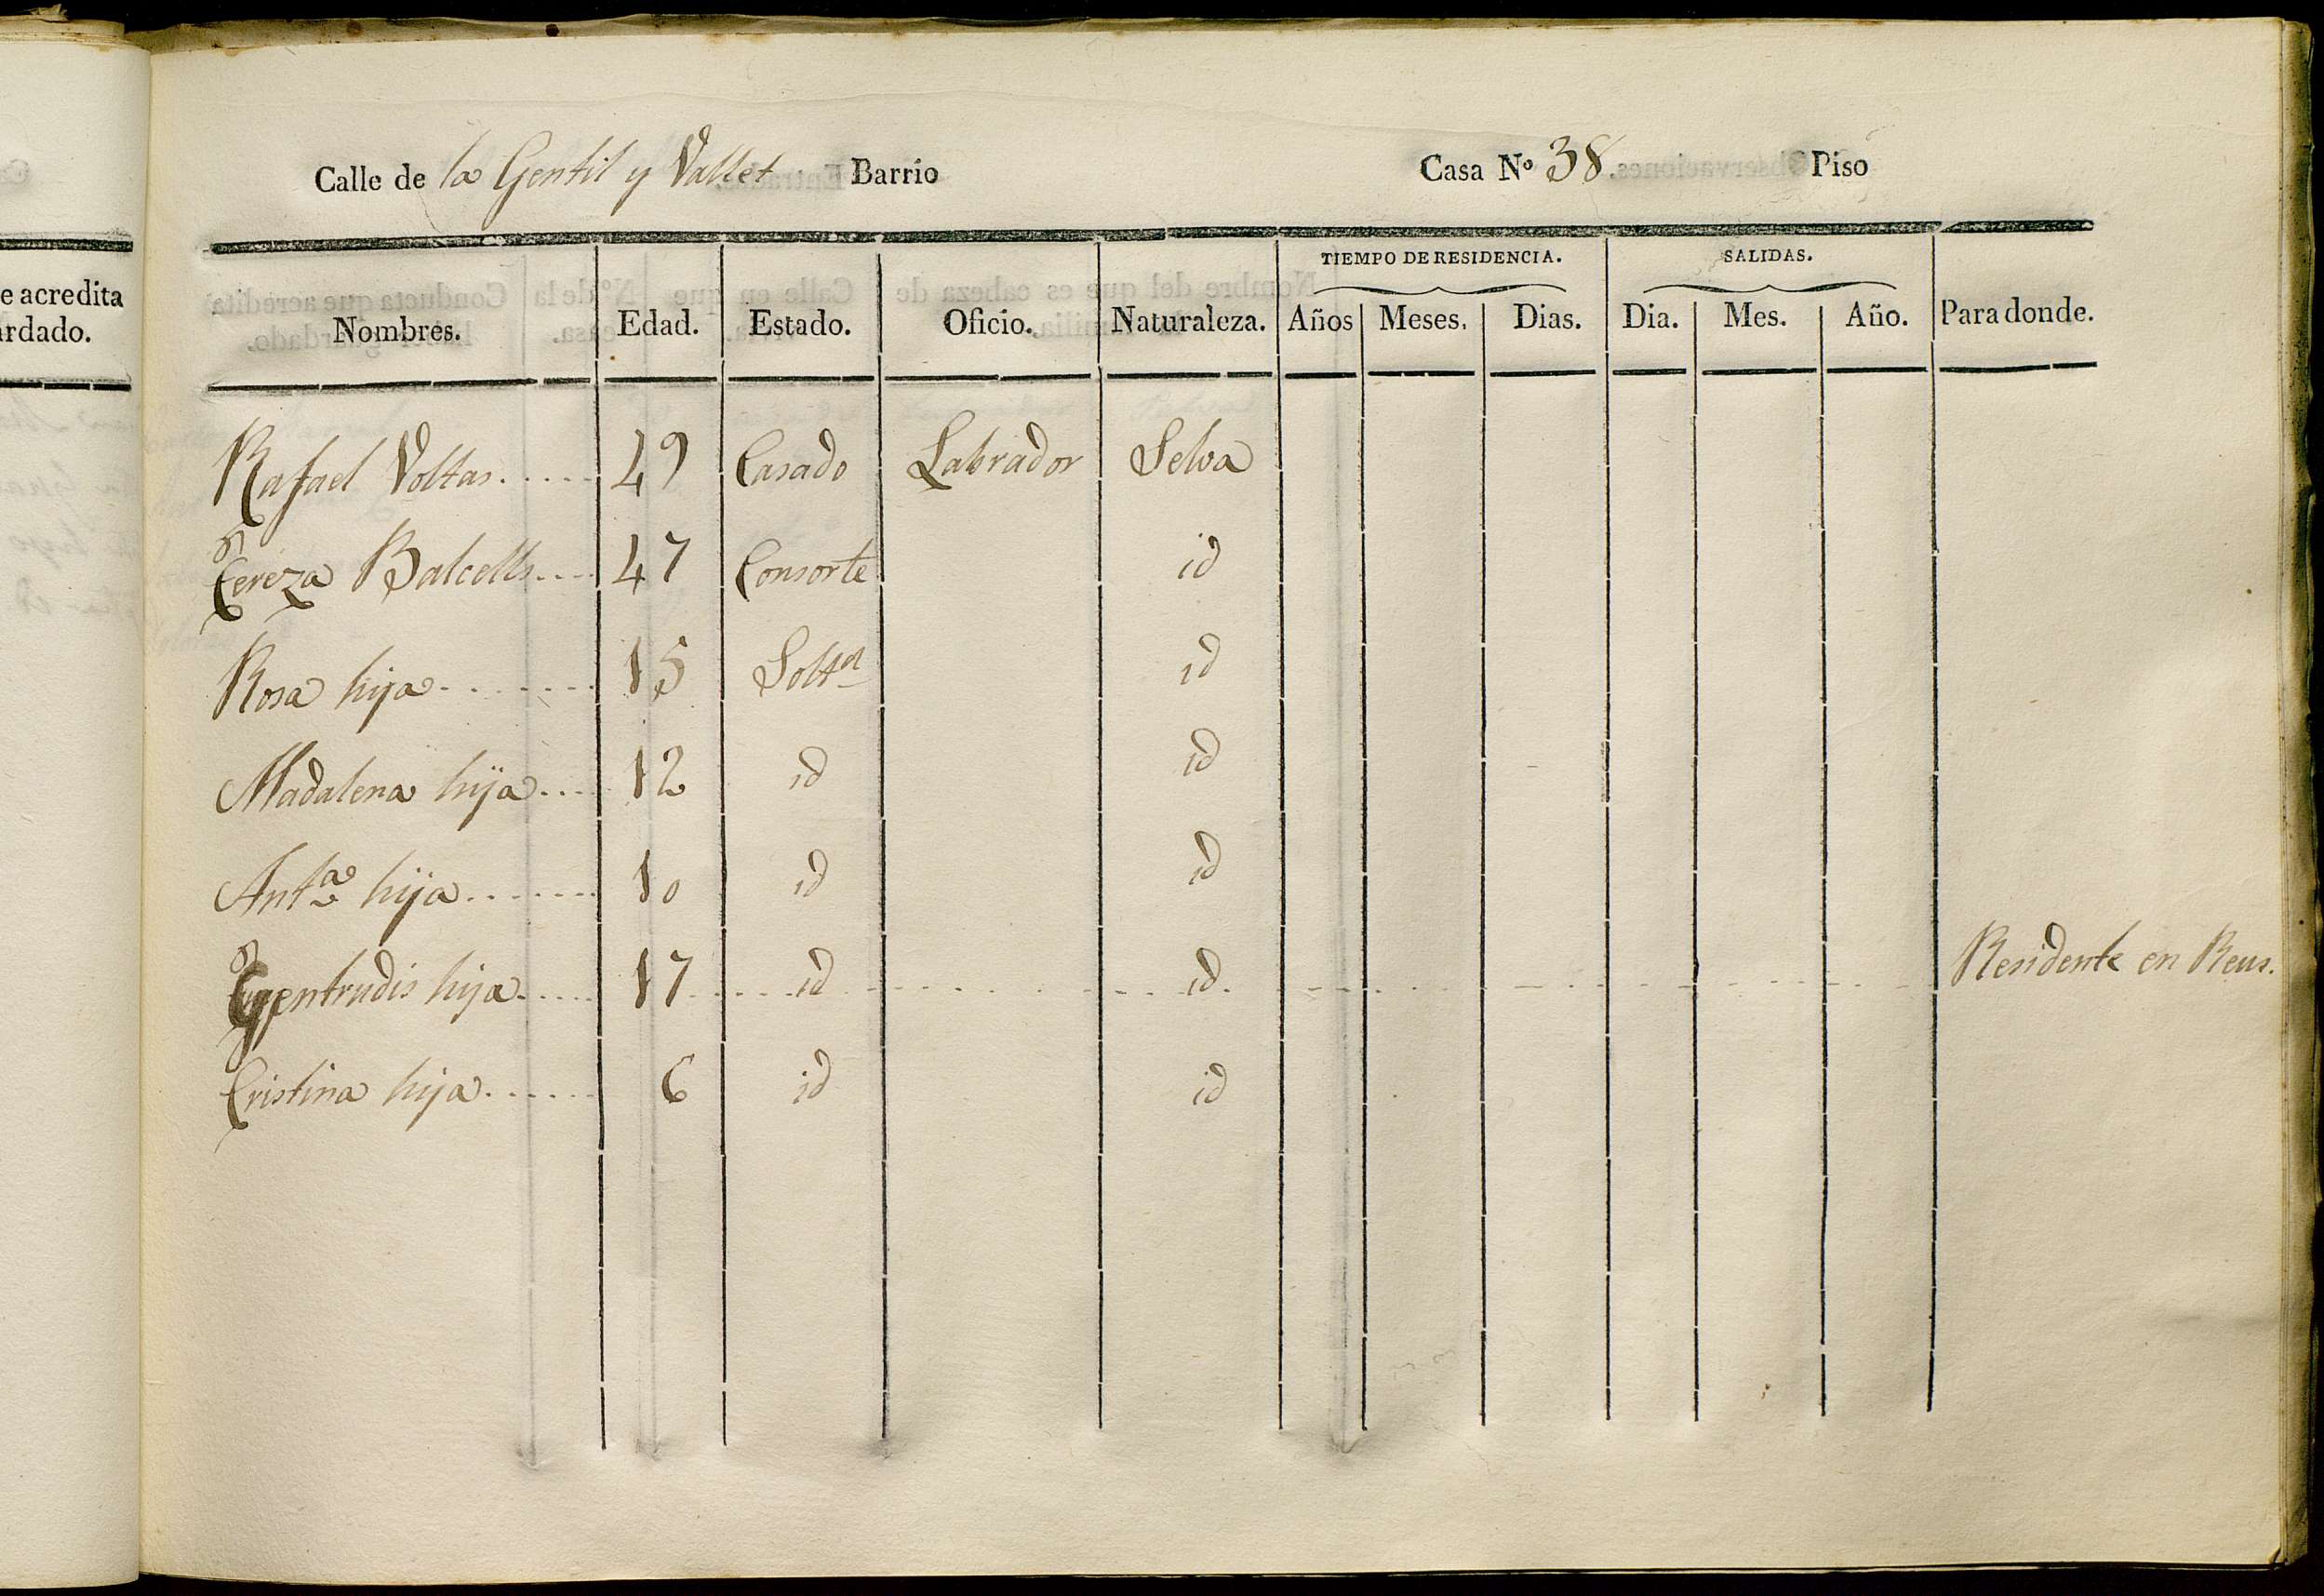 Calle de la Gentil y Vallet Barrio Casa Nº 38 Piso
TIEMPO DE RESIDENCIA. SALIDAS.
Nombres. Edad. Estado. Oficio. Naturaleza. Años Meses. Dias. Dia. Mes. Año. Para donde.
Rafael Voltas 49 Casado Labrador Selva
Tereza Balcells 47 Consorte id
Rosa hija 15 Soltª id
Madalena hija 12 id id
Antª hija 10 id id
Gentrudis hija 17 id id Residente en Reus.
Cristina hija 6 id id
e acredita
ardado.